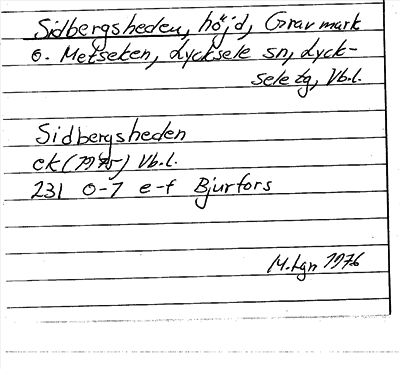 Sidbergsheden, höjd, Gravmark
o. Metseken, Lycksele sn, Lyck-
sele tg, Vb.l.
Sidbergsheden
ek (1975) Vb.l.
231 0-7 e-f Bjurfors
M.Lgn 1976